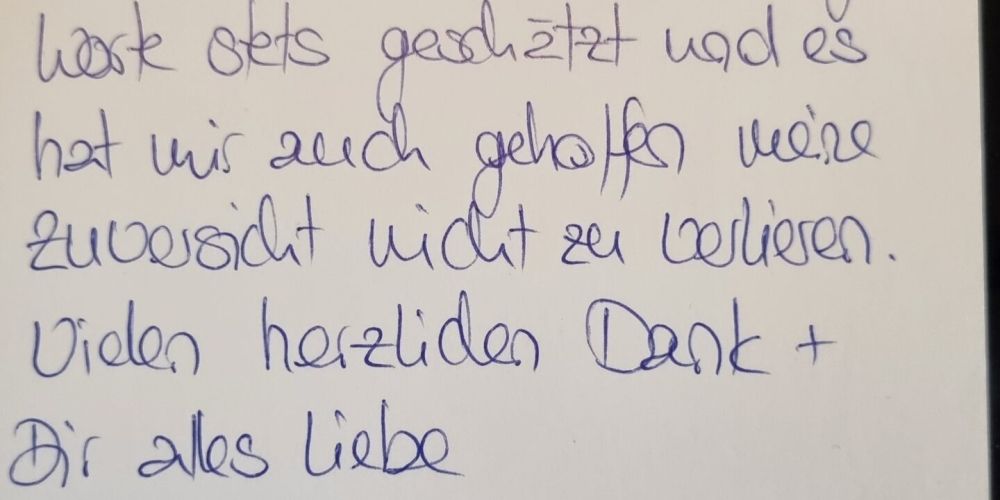 Werk stets geschätzt und es
hat mir auch geholfen meine
Zuversicht nicht zu verlieren.
Vielen herzlichen Dank +
Dir alles Liebe